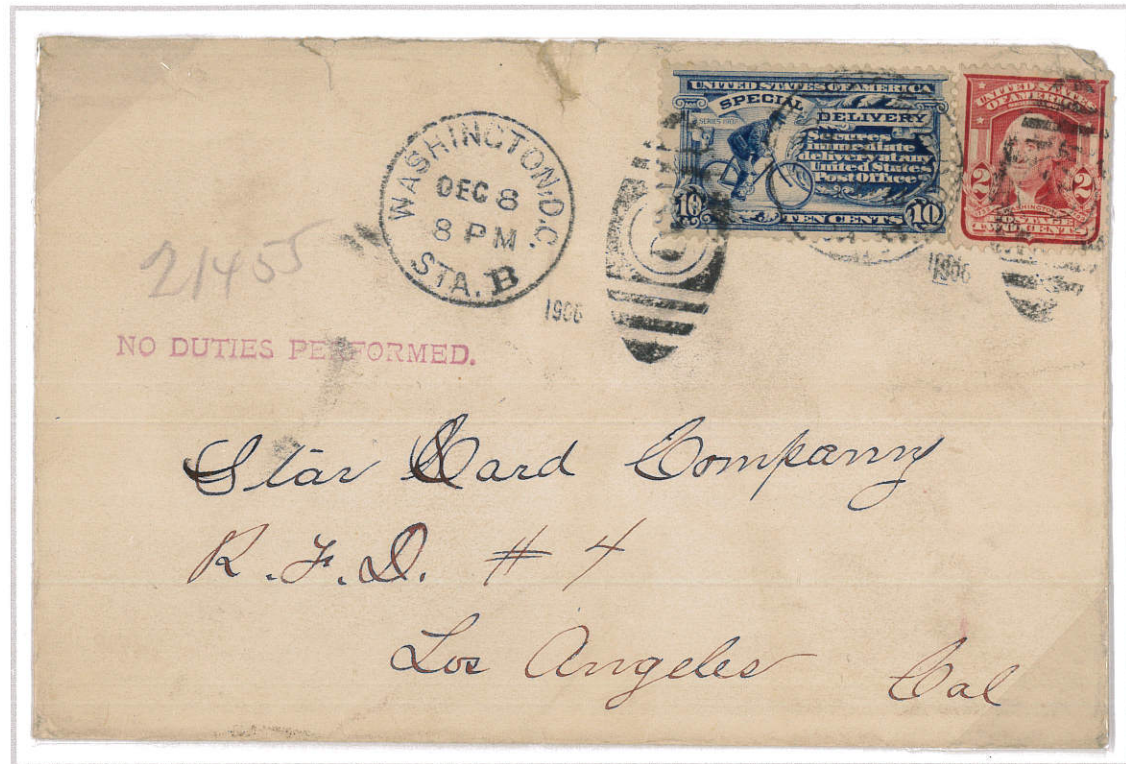 UNITED STATES OF AMERICA
SPECIAL DELIVERY
SERIES 1902
Secures
immediate
delivery at any
United States
Post Office
10 TEN CENTS 10
UNITED STATES
OF AMERICA
2 2
WASHINGTON
TWO CENTS
WASHINGTON, D.C.
DEC 8
8 PM
STA. B
1906
1906
21455
NO DUTIES PERFORMED.
Star Card Company
R.F.D. # 4
Los Angeles Cal